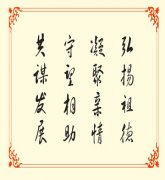 弘揚祖德
凝聚亲情
守望相助
共謀发展